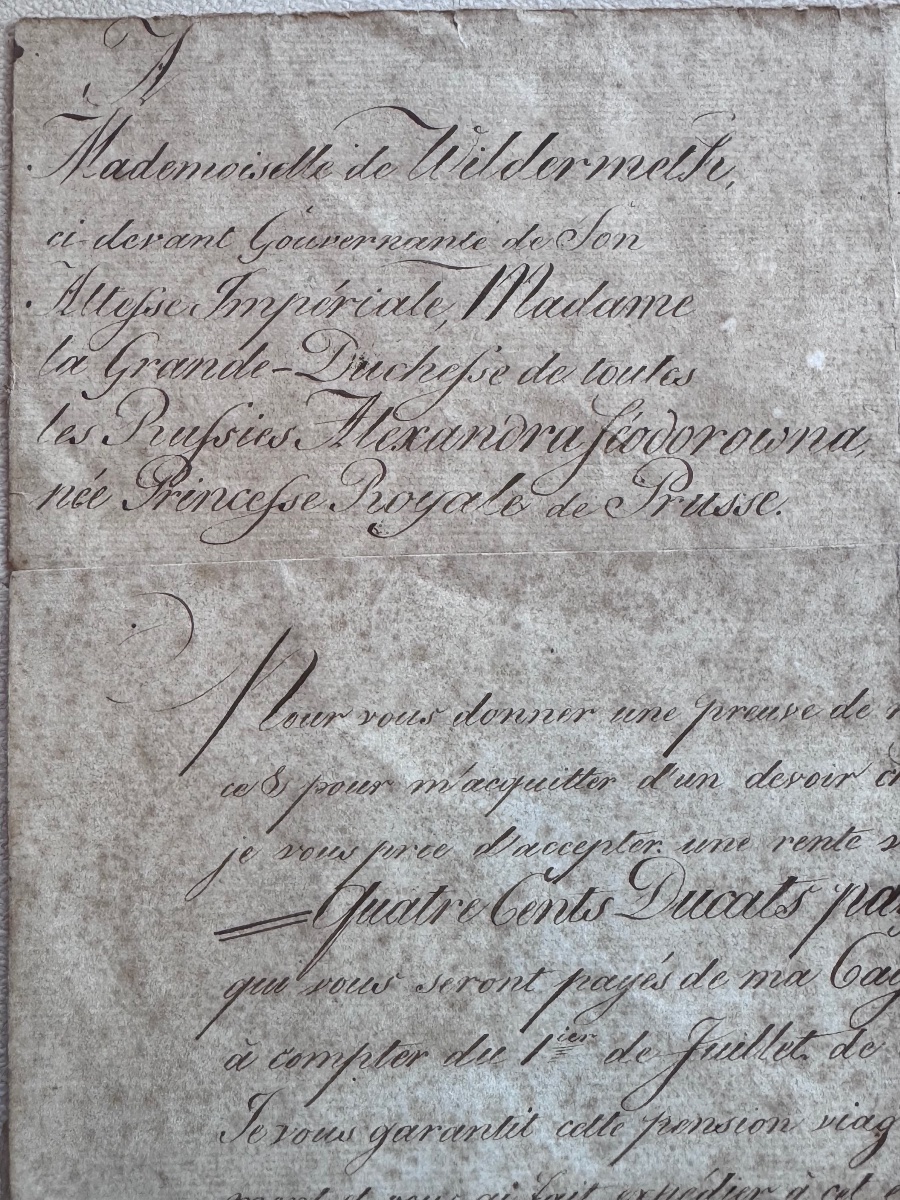 A
Mademoiselle de Wildermeth,
ci-devant Gouvernante de Son
Altesse Impériale, Madame
la Grande-Duchesse de toutes
les Russies Alexandra Féodorowna,
née Princesse Royale de Prusse.
Pour vous donner une preuve de
ce & pour m'acquitter d'un devoir
je vous prie d'accepter une rente
Quatre Cents Ducats
qui vous seront payés de ma
à compter du 1ier de Juillet de
Je vous garantit cette pension viag
ment et vous ai fait expédier à cet